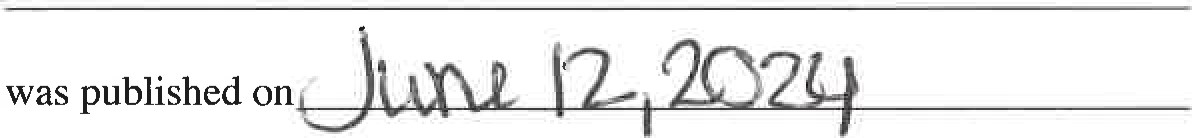 was published on June 12, 2024